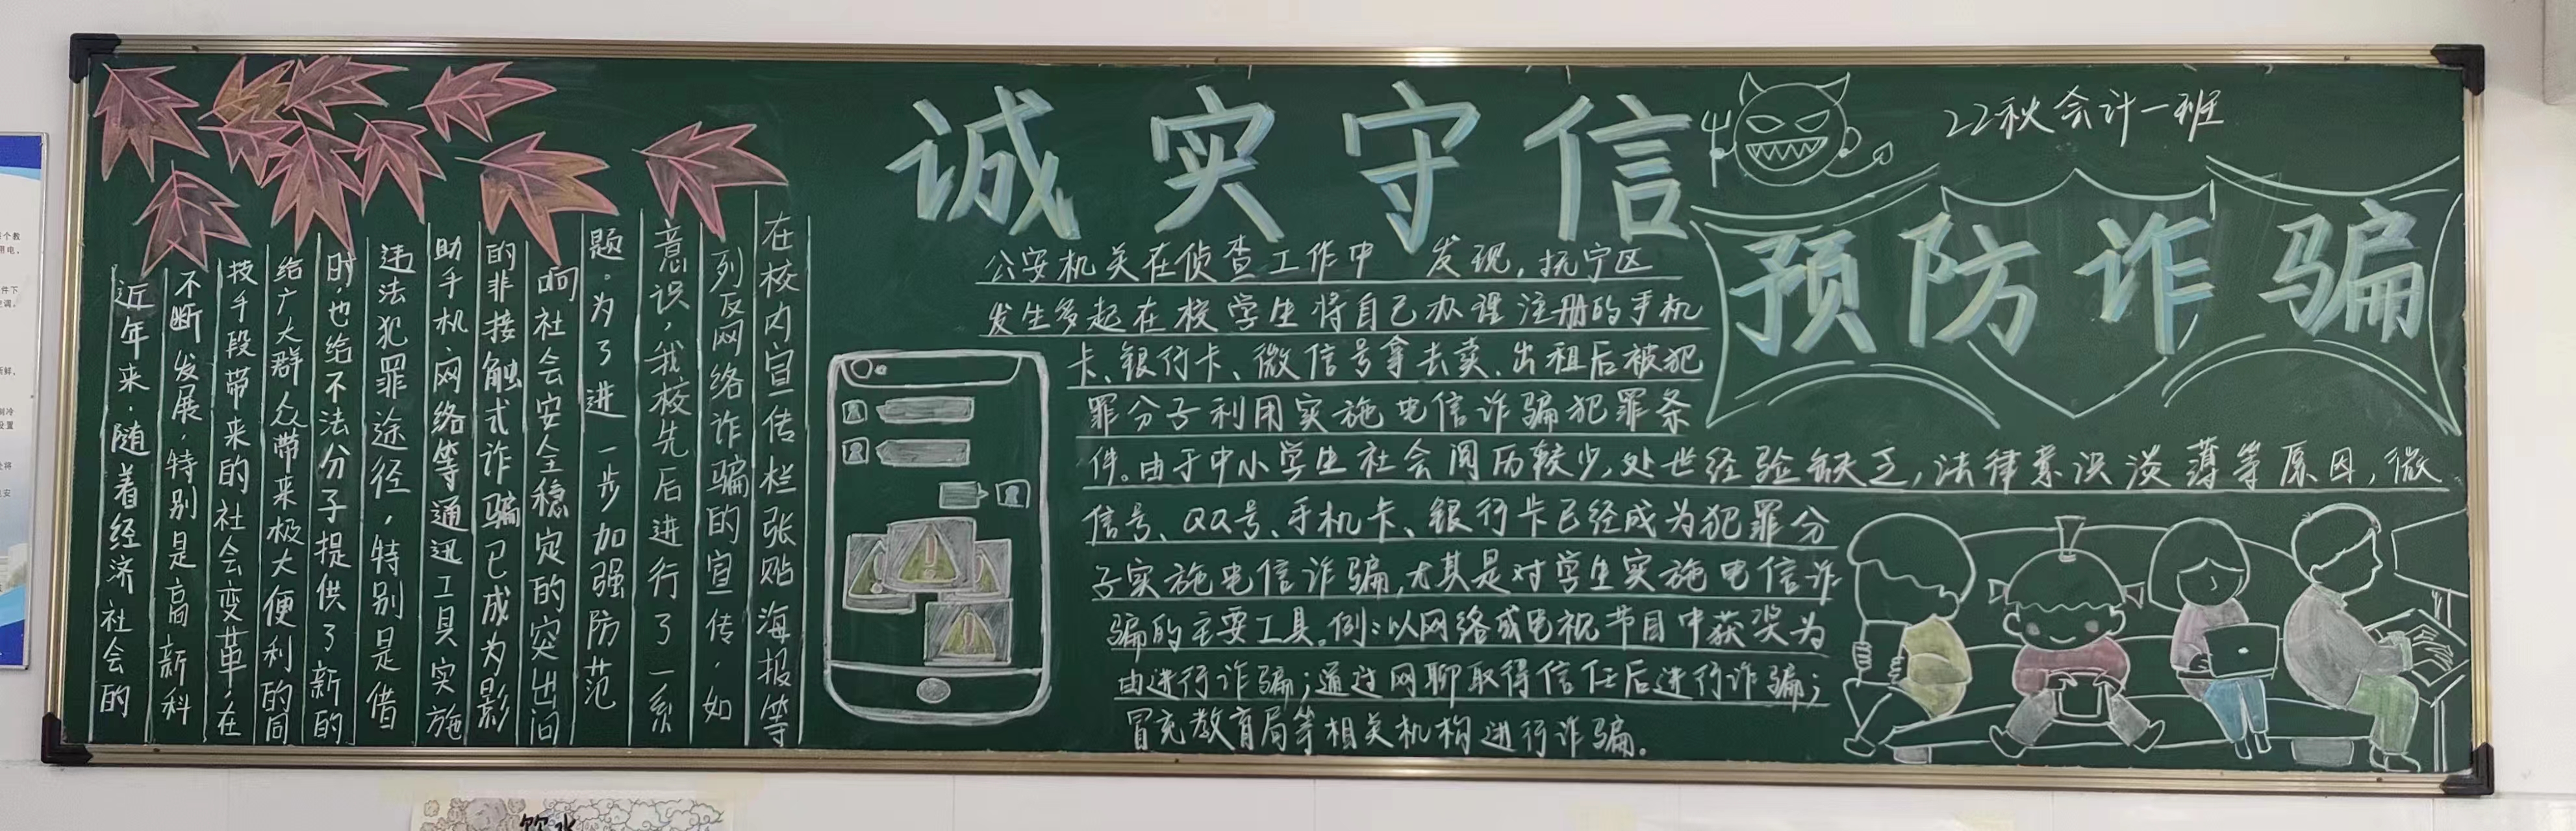 诚实守信
22秋会计一班
预防诈骗
近年来，随着经济社会的
不断发展，特别是高新科
技手段带来的社会变革，在
给广大群众带来极大便利的同
时，也给不法分子提供了新的
违法犯罪途径，特别是借
助手机、网络等通迅工具实施
的非接触式诈骗已成为影
响社会安全稳定的突出问
题。为了进一步加强防范
意识，我校先后进行了一系
列反网络诈骗的宣传，如
在校内宣传栏张贴海报等
公安机关在侦查工作中 发现，抚宁区
发生多起在校学生将自己办理注册的手机
卡、银行卡、微信号拿去卖、出租后被犯
罪分子利用实施电信诈骗犯罪案
件。由于中小学生社会阅历较少，处世经验缺乏，法律意识淡薄等原因，微
信号、QQ号、手机卡、银行卡已经成为犯罪分
子实施电信诈骗，尤其是对学生实施电信诈
骗的主要工具。例：以网络或电视节目中获奖为
由进行诈骗；通过网聊取得信任后进行诈骗；
冒充教育局等相关机构进行诈骗。
饮水